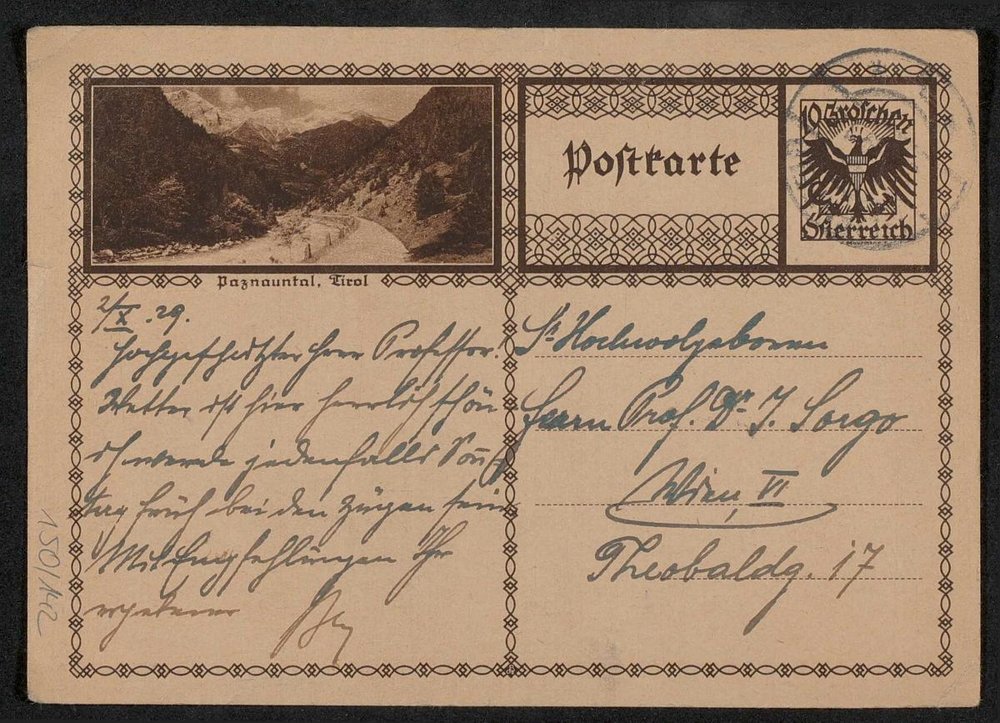 Postkarte
10 Groschen
Österreich
Paznauntal, Tirol
2/X. 29.
Hochgeschätzter Herr Professor!
Wetter ist hier herrlich schön
ich werde jedenfalls Sonn-
tag früh bei den Zügen sein
Mit Empfehlungen Ihr
ergebener
Sr Hochwolgeboren
Herrn Prof. Dr J. Sorgo
Wien, VI
Theobaldg. 17
150/142